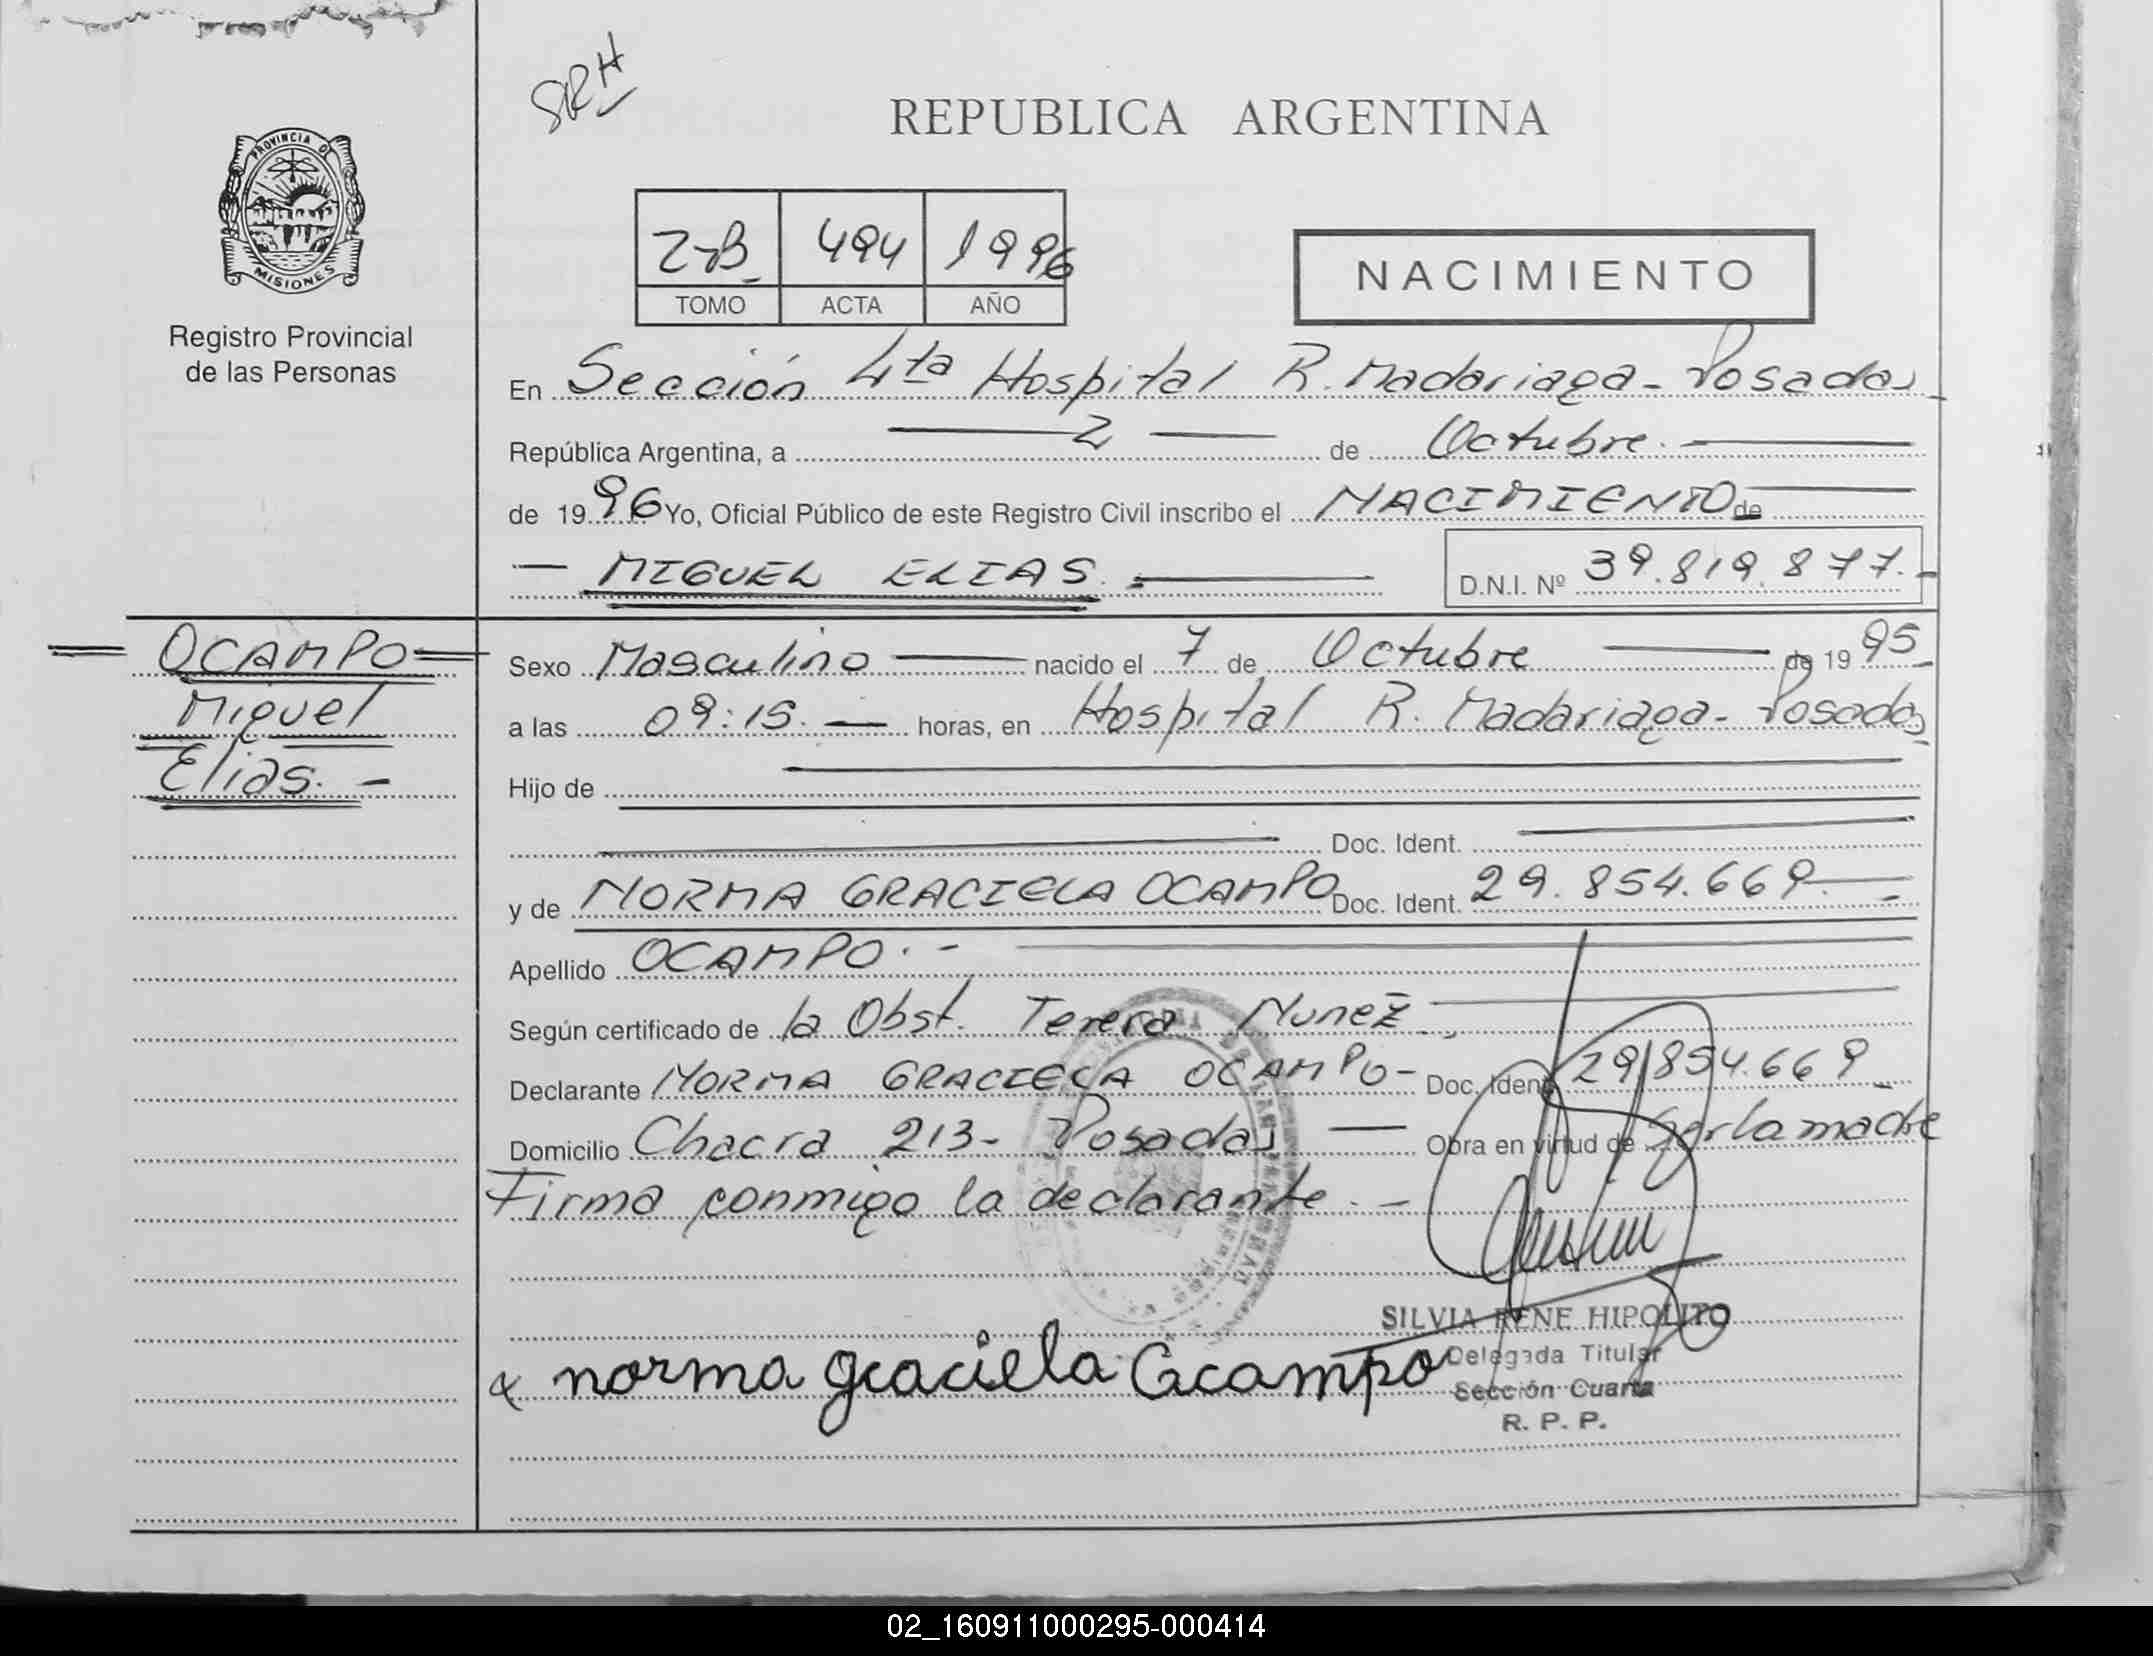 SRH
REPUBLICA ARGENTINA
PROVINCIA D
MISIONES
Registro Provincial
de las Personas
2-B 494 1996
TOMO ACTA AÑO
NACIMIENTO
En Sección 4ta Hospital R. Madariaga - Posadas
República Argentina, a 2 de Octubre
de 1996 Yo, Oficial Público de este Registro Civil inscribo el NACIMIENTO de
MIGUEL ELIAS. D.N.I. Nº 39.819.877.-
OCAMPO
Miguel
Elias. -
Sexo Masculino nacido el 7 de Octubre de 1995
a las 09:15. horas, en Hospital R. Madariaga - Posadas
Hijo de
Doc. Ident.
y de NORMA GRACIELA OCAMPO Doc. Ident. 29.854.669.
Apellido OCAMPO. -
Según certificado de la Obst. Teresa Nunez
Declarante NORMA GRACIELA OCAMPO - Doc. Ident. 29.854.669
Domicilio Chacra 213 - Posadas Obra en virtud de Ser la madre
Firma conmigo la declarante. -
SILVIA RENE HIPOLITO
Delegada Titular
Sección Cuarta
R. P. P.
norma graciela Ocampo
02_160911000295-000414